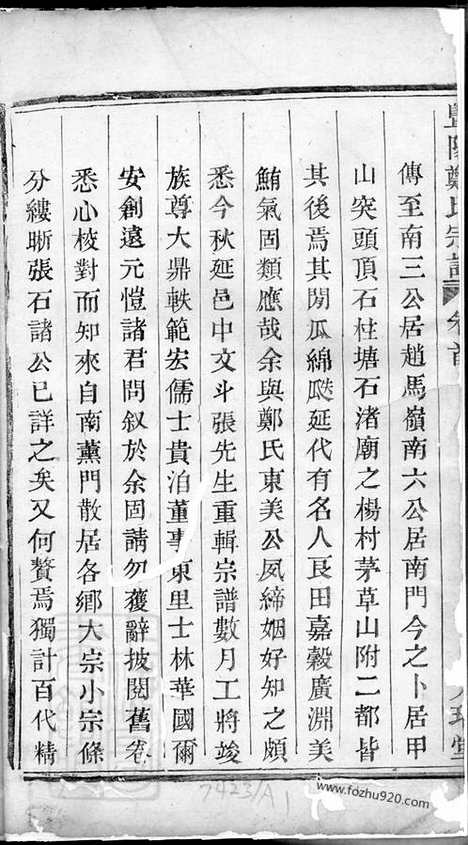 暨陽鄭氏宗譜 卷首
傳至南三公居趙馬嶺南六公居南門今之卜居甲
山突頭頂石柱塘石渚廟之楊村茅草山附二都皆
其後焉其閱瓜綿瓞延代有名人良田嘉穀廣淵美
鮪氣固類應哉余與鄭氏東美公夙締姻好知之頗
悉今秋延邑中文斗張先生重輯宗譜數月工將竣
族尊大鼎軼範宏儒士貴泊董事東里士林華國爾
安創遠元愷諸君問叙於余固請勿獲辭披閱舊卷
悉心校對而知來自南薰門散居各鄉大宗小宗條
分縷晰張石諸公已詳之矣又何贅焉獨計百代精
7423/A1
www.fozhu920.com